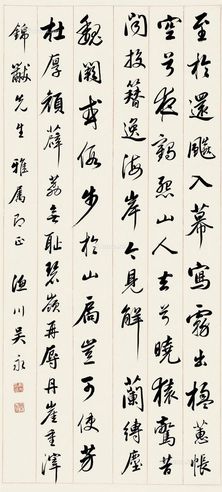 至於還飇入幕寫霧出楹蕙帳
空兮夜鶴怨山人去兮曉猿驚昔
聞投簪逸海岸今見解蘭縛塵
魏闕或假步於山扃豈可使芳
杜厚顏薜荔無恥碧嶺再辱丹崖重滓
錦猷先生雅屬即正 漁川吳永